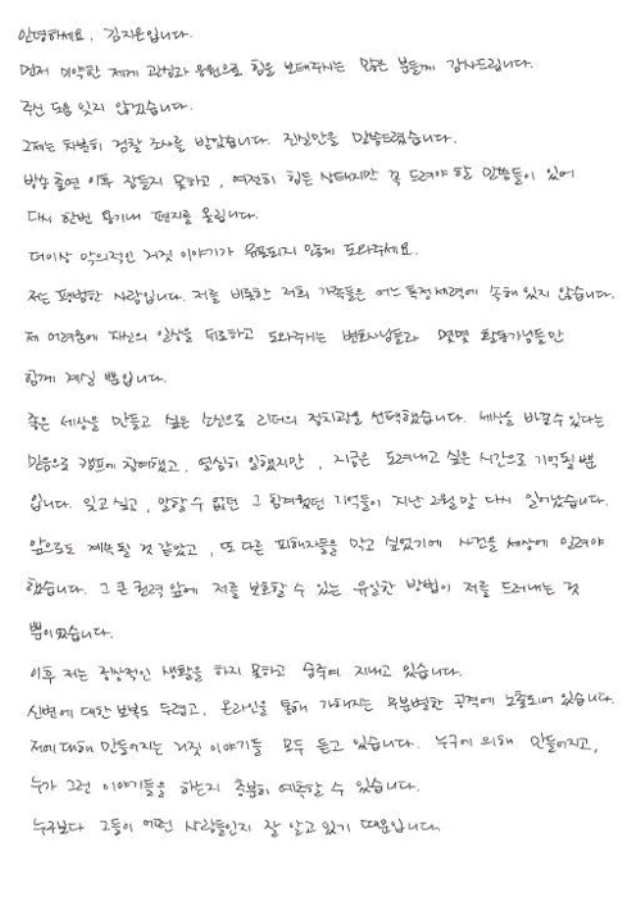 안녕하세요, 김지은입니다.
먼저 미약한 제게 관심과 응원으로 힘을 보태주시는 많은 분들께 감사드립니다.
주신 도움 잊지 않겠습니다.
그제는 차분히 검찰 조사를 받았습니다. 진실만을 말씀드렸습니다.
방송 출연 이후 잠들지 못하고, 여전히 힘든 상태지만 꼭 드려야 할 말씀들이 있어
다시 한번 용기내 편지를 올립니다.
더이상 악의적인 거짓 이야기가 유포되지 않게 도와주세요.
저는 평범한 사람입니다. 저를 비롯한 저희 가족들은 어느 특정 세력에 속해 있지 않습니다.
제 어려움에 자신의 일상을 뒤로하고 도와주시는 변호사님들과 몇몇 활동가님들만
함께 계실 뿐입니다.
좋은 세상을 만들고 싶은 소신으로 리더의 정치관을 선택했습니다. 세상을 바꿀 수 있다는
믿음으로 캠프에 참여했고, 열심히 일했지만, 지금은 도려내고 싶은 시간으로 기억될 뿐
입니다. 잊고 싶고, 말할 수 없던 그 힘겨웠던 기억들이 지난 2월 말 다시 일어났습니다.
앞으로도 계속될 것 같았고, 또 다른 피해자들을 막고 싶었기에 사건을 세상에 알려야
했습니다. 그 큰 권력 앞에 저를 보호할 수 있는 유일한 방법이 저를 드러내는 것
뿐이었습니다.
이후 저는 정상적인 생활을 하지 못하고 숨죽여 지내고 있습니다.
신변에 대한 보복도 두렵고, 온라인을 통해 가해지는 무분별한 공격에 노출되어 있습니다.
저에 대해 만들어지는 거짓 이야기들 모두 듣고 있습니다. 누구에 의해 만들어지고,
누가 그런 이야기들을 하는지 충분히 예측할 수 있습니다.
누구보다 그들이 어떤 사람들인지 잘 알고 있기 때문입니다.